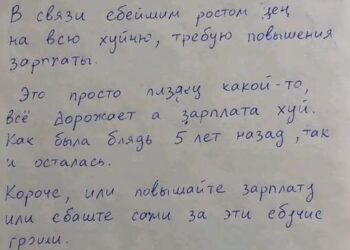 В связи ебейшим ростом цен
на всю хуйню, требую повышения
зарплаты.
Это просто пиздец какой-то,
всё дорожает а зарплата хуй.
Как была блядь 5 лет назад, так
и осталась.
Короче, или повышайте зарплату
или ебаште сами за эти ебучие
гроши.